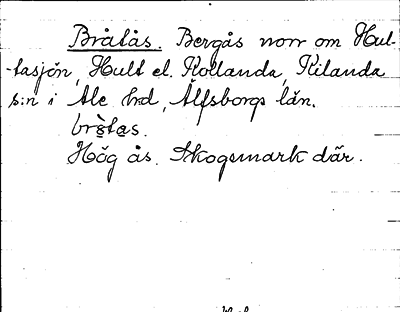 Bråtås. Bergås norr om Hul-
tasjön, Hult el. Kollanda, Kilanda
s:n i Ale hd, Älfsborgs län.
Hög ås. Skogsmark där.